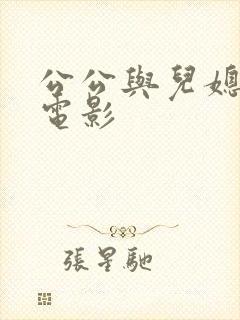 公公與兒媳
電影
張星馳